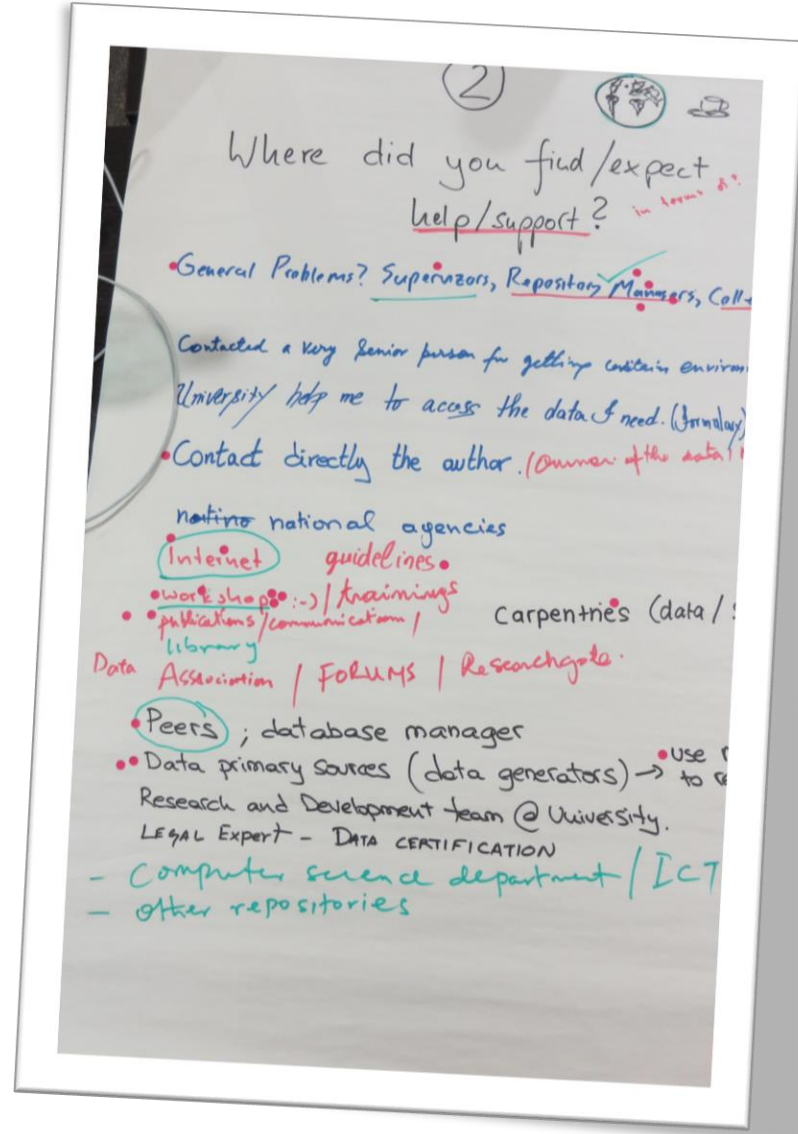 2
Where did you find/expect
help/support?
in terms of?
General Problems? Supervizors, Repository Managers, Coll
Contacted a very Senior person for getting certain environ
University help me to access the data I need.
Contact directly the author. (Owner of the data)
national agencies
Internet guidelines
workshop :-) / trainings
publications/communication/
Carpentries (data/
library
Data Association / FORUMS / Researchgate.
Peers ; database manager
Data primary sources (data generators) → use
to re
Research and Development team @ University.
LEGAL Expert - DATA CERTIFICATION
- Computer science department / ICT
- other repositories